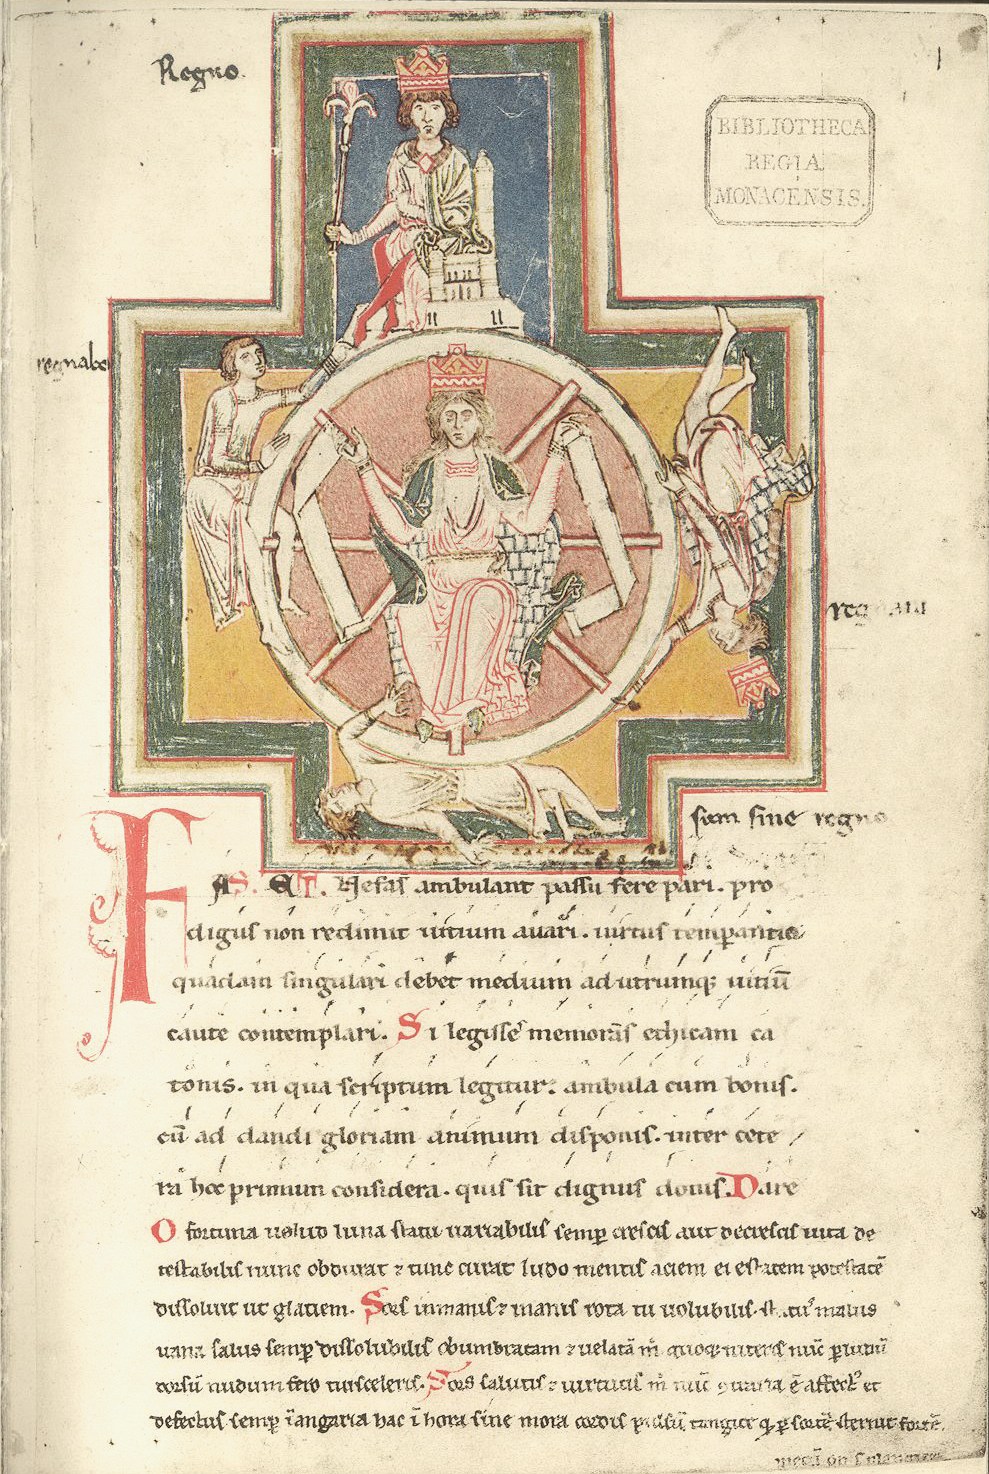 Regno
BIBLIOTHECA
REGIA
MONACENSIS.
regnabo
sum sine regno
FAS ET Nefas ambulant passu fere pari. pro
digus non redimit uitium auari. uirtus temperantia
quadam singulari debet medium ad utrumq; uitiū
caute contemplari. Si legisse memoras ethicam ca
tonis. in qua scriptum legitur. ambula cum bonis.
cū ad dandi gloriam animum disponis. inter cete
ra hoc primum considera. quis sit dignus donis. Dare
O fortuna uelud luna statu uariabilis semp crescis aut decrescis uita de
testabilis nunc obdurat ⁊ tunc curat ludo mentis aciem egestatem potestatē
dissoluit ut glatiem. Sors inmanis ⁊ inanis rota tu uolubilis statu malus
uana salus semp dissolubilis obumbratam ⁊ uelatā m̄ quoq; niteris nūc
dorsū nudum fero tui sceleris. Sors salutis ⁊ uirtutis m̄ nūc ē affect et
defectus semp ī angaria hac ī hora sine mora cordis tangite q